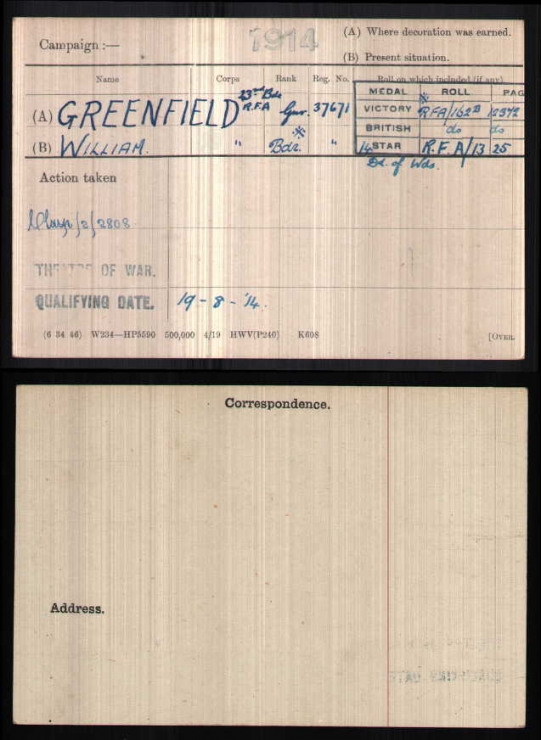 Campaign :— 1914 (A) Where decoration was earned.
(B) Present situation.
Name Corps Rank Reg. No. Roll on which included (if any)
MEDAL ROLL PAG
(A) GREENFIELD 23rd Bde R.F.A Gnr. 37671 VICTORY RFA/162B
BRITISH do do
(B) WILLIAM. " Bdr. " 14 STAR R.F.A/13 25
D. of Wds.
Action taken
/2/2808
THEATRE OF WAR.
QUALIFYING DATE. 19-8-'14.
(6 34 46) W234—HP5590 500,000 4/19 HWV(P240) K608 [OVER.
Correspondence.
Address.